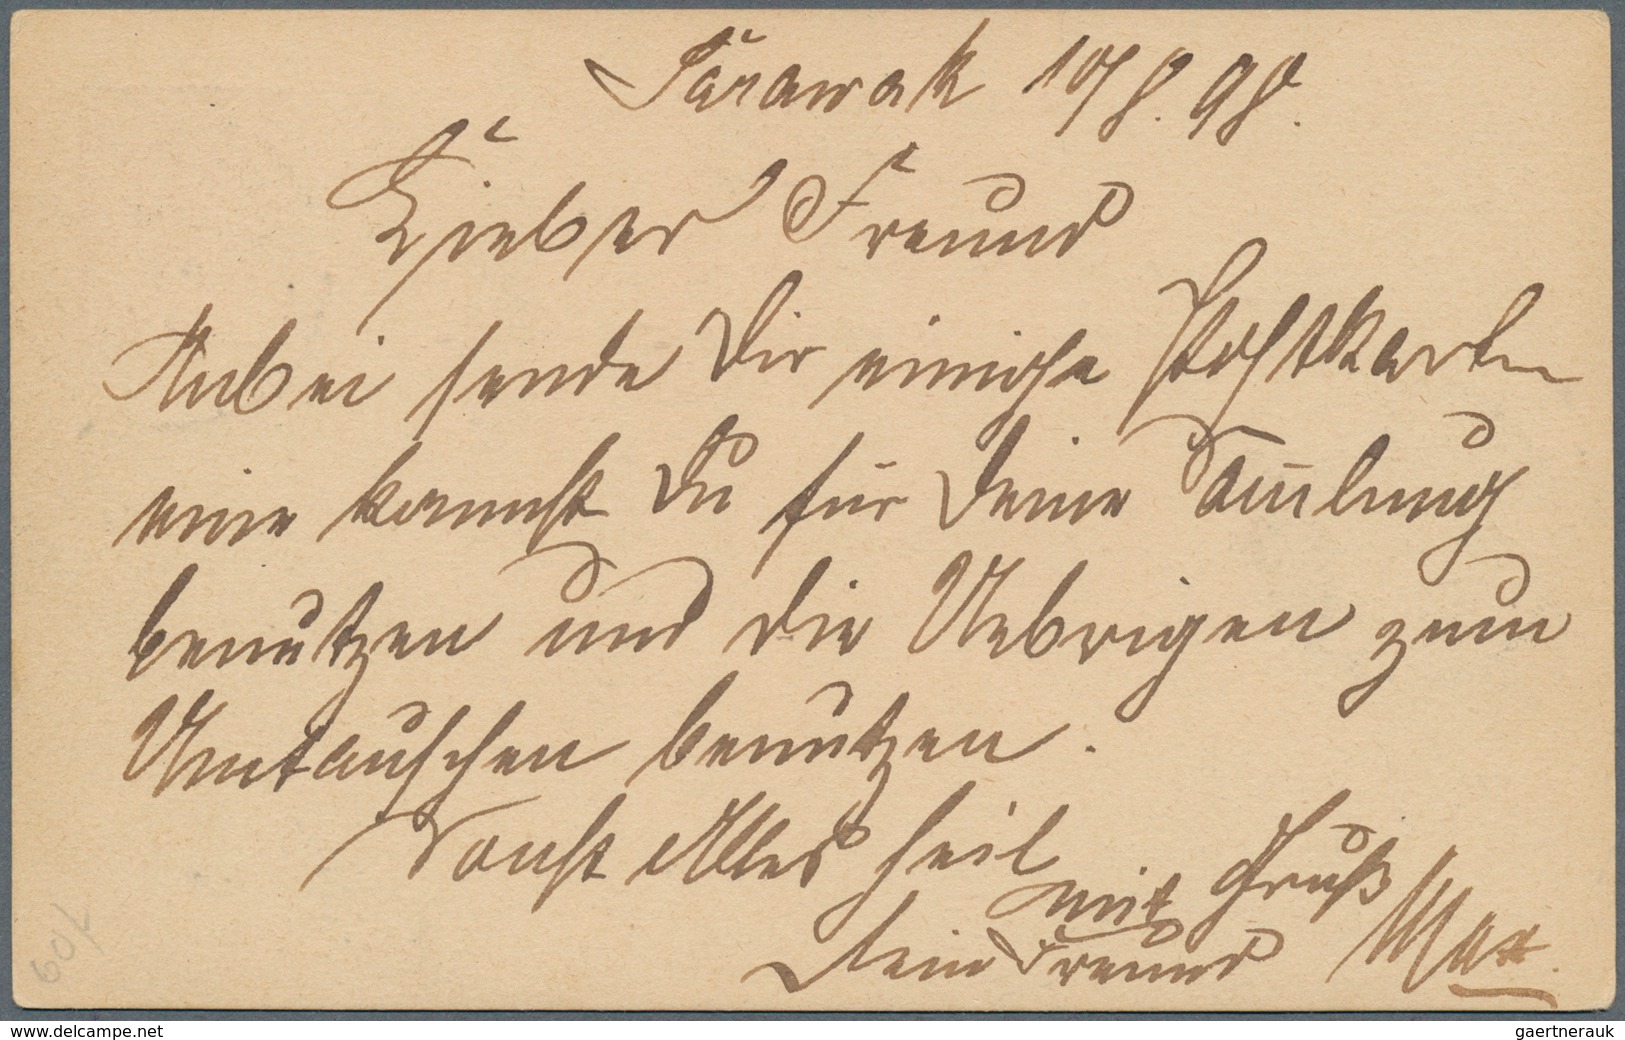 Sarawak 10/8. 98.
Lieber Freund
Anbei sende Dir einige Postkarten
eine kannst Du für Deine Sam̅lung
benutzen und die Uebrigen zum
Umtauschen benutzen.
Sonst Alles heil
mit Gruß
Dein Freund Max.
109
www.delcampe.net
gaertnerauk